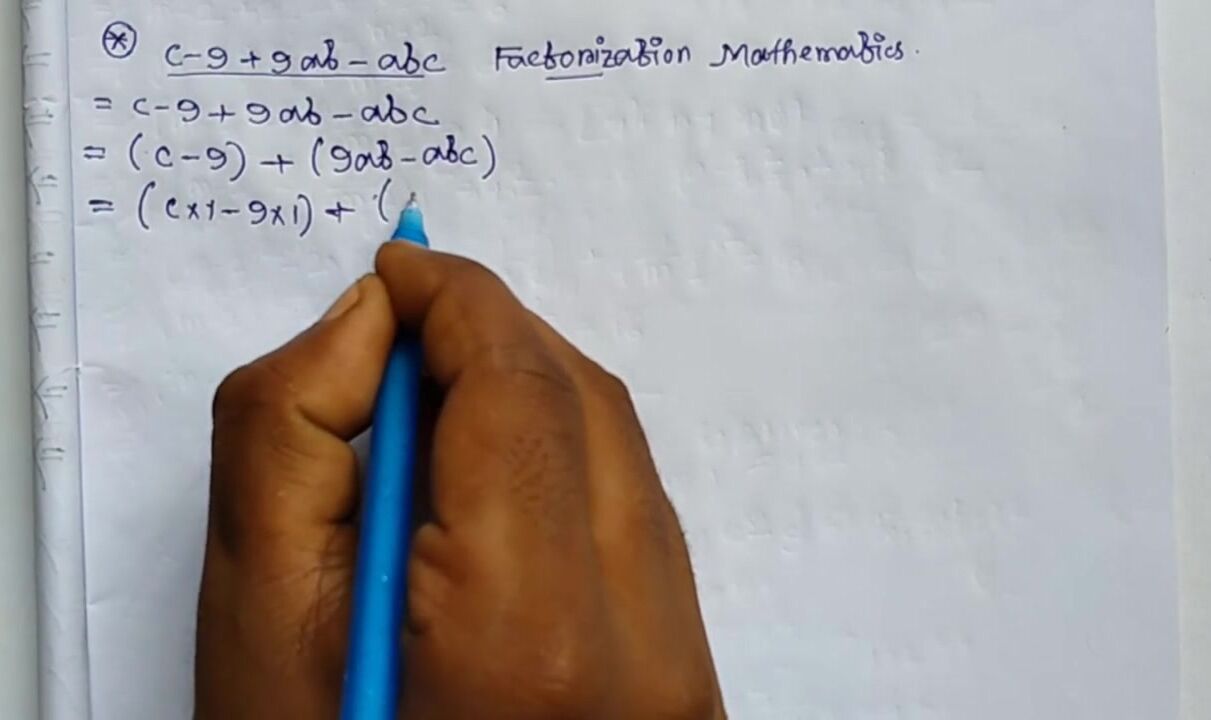 * c-9+9ab-abc Factorization Mathematics.
= c-9+9ab-abc
= (c-9)+(9ab-abc)
= (c×1-9×1)+(